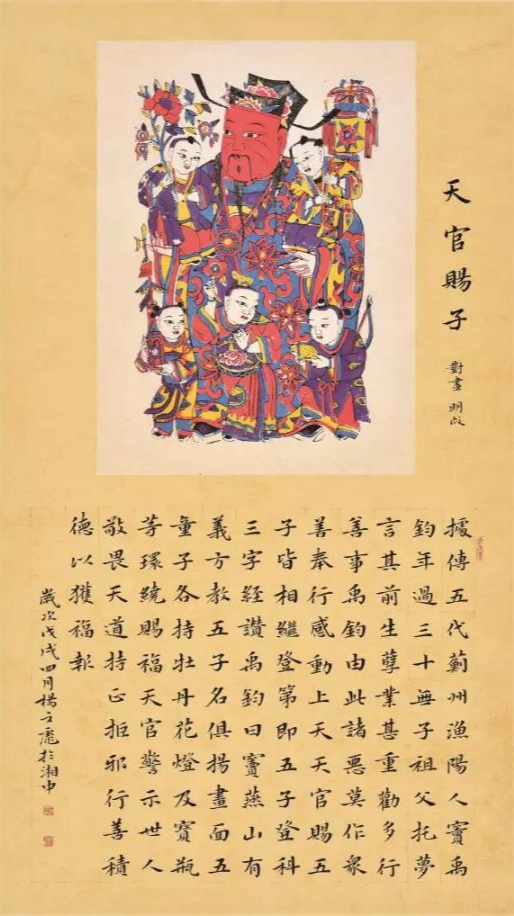 天官賜子
對畫 明
據傳五代薊州漁陽人竇禹
鈞年過三十無子祖父托夢
言其前生孽業甚重勸多行
善事禹鈞由此諸惡莫作眾
善奉行感動上天天官賜五
子皆相繼登第即五子登科
三字經讚禹鈞曰竇燕山有
義方教五子名俱揚畫面五
童子各持牡丹花燈及寶瓶
等環繞賜福天官警示世人
敬畏天道持正拒邪行善積
德以獲福報
歲次戊戌四月楊於湘中